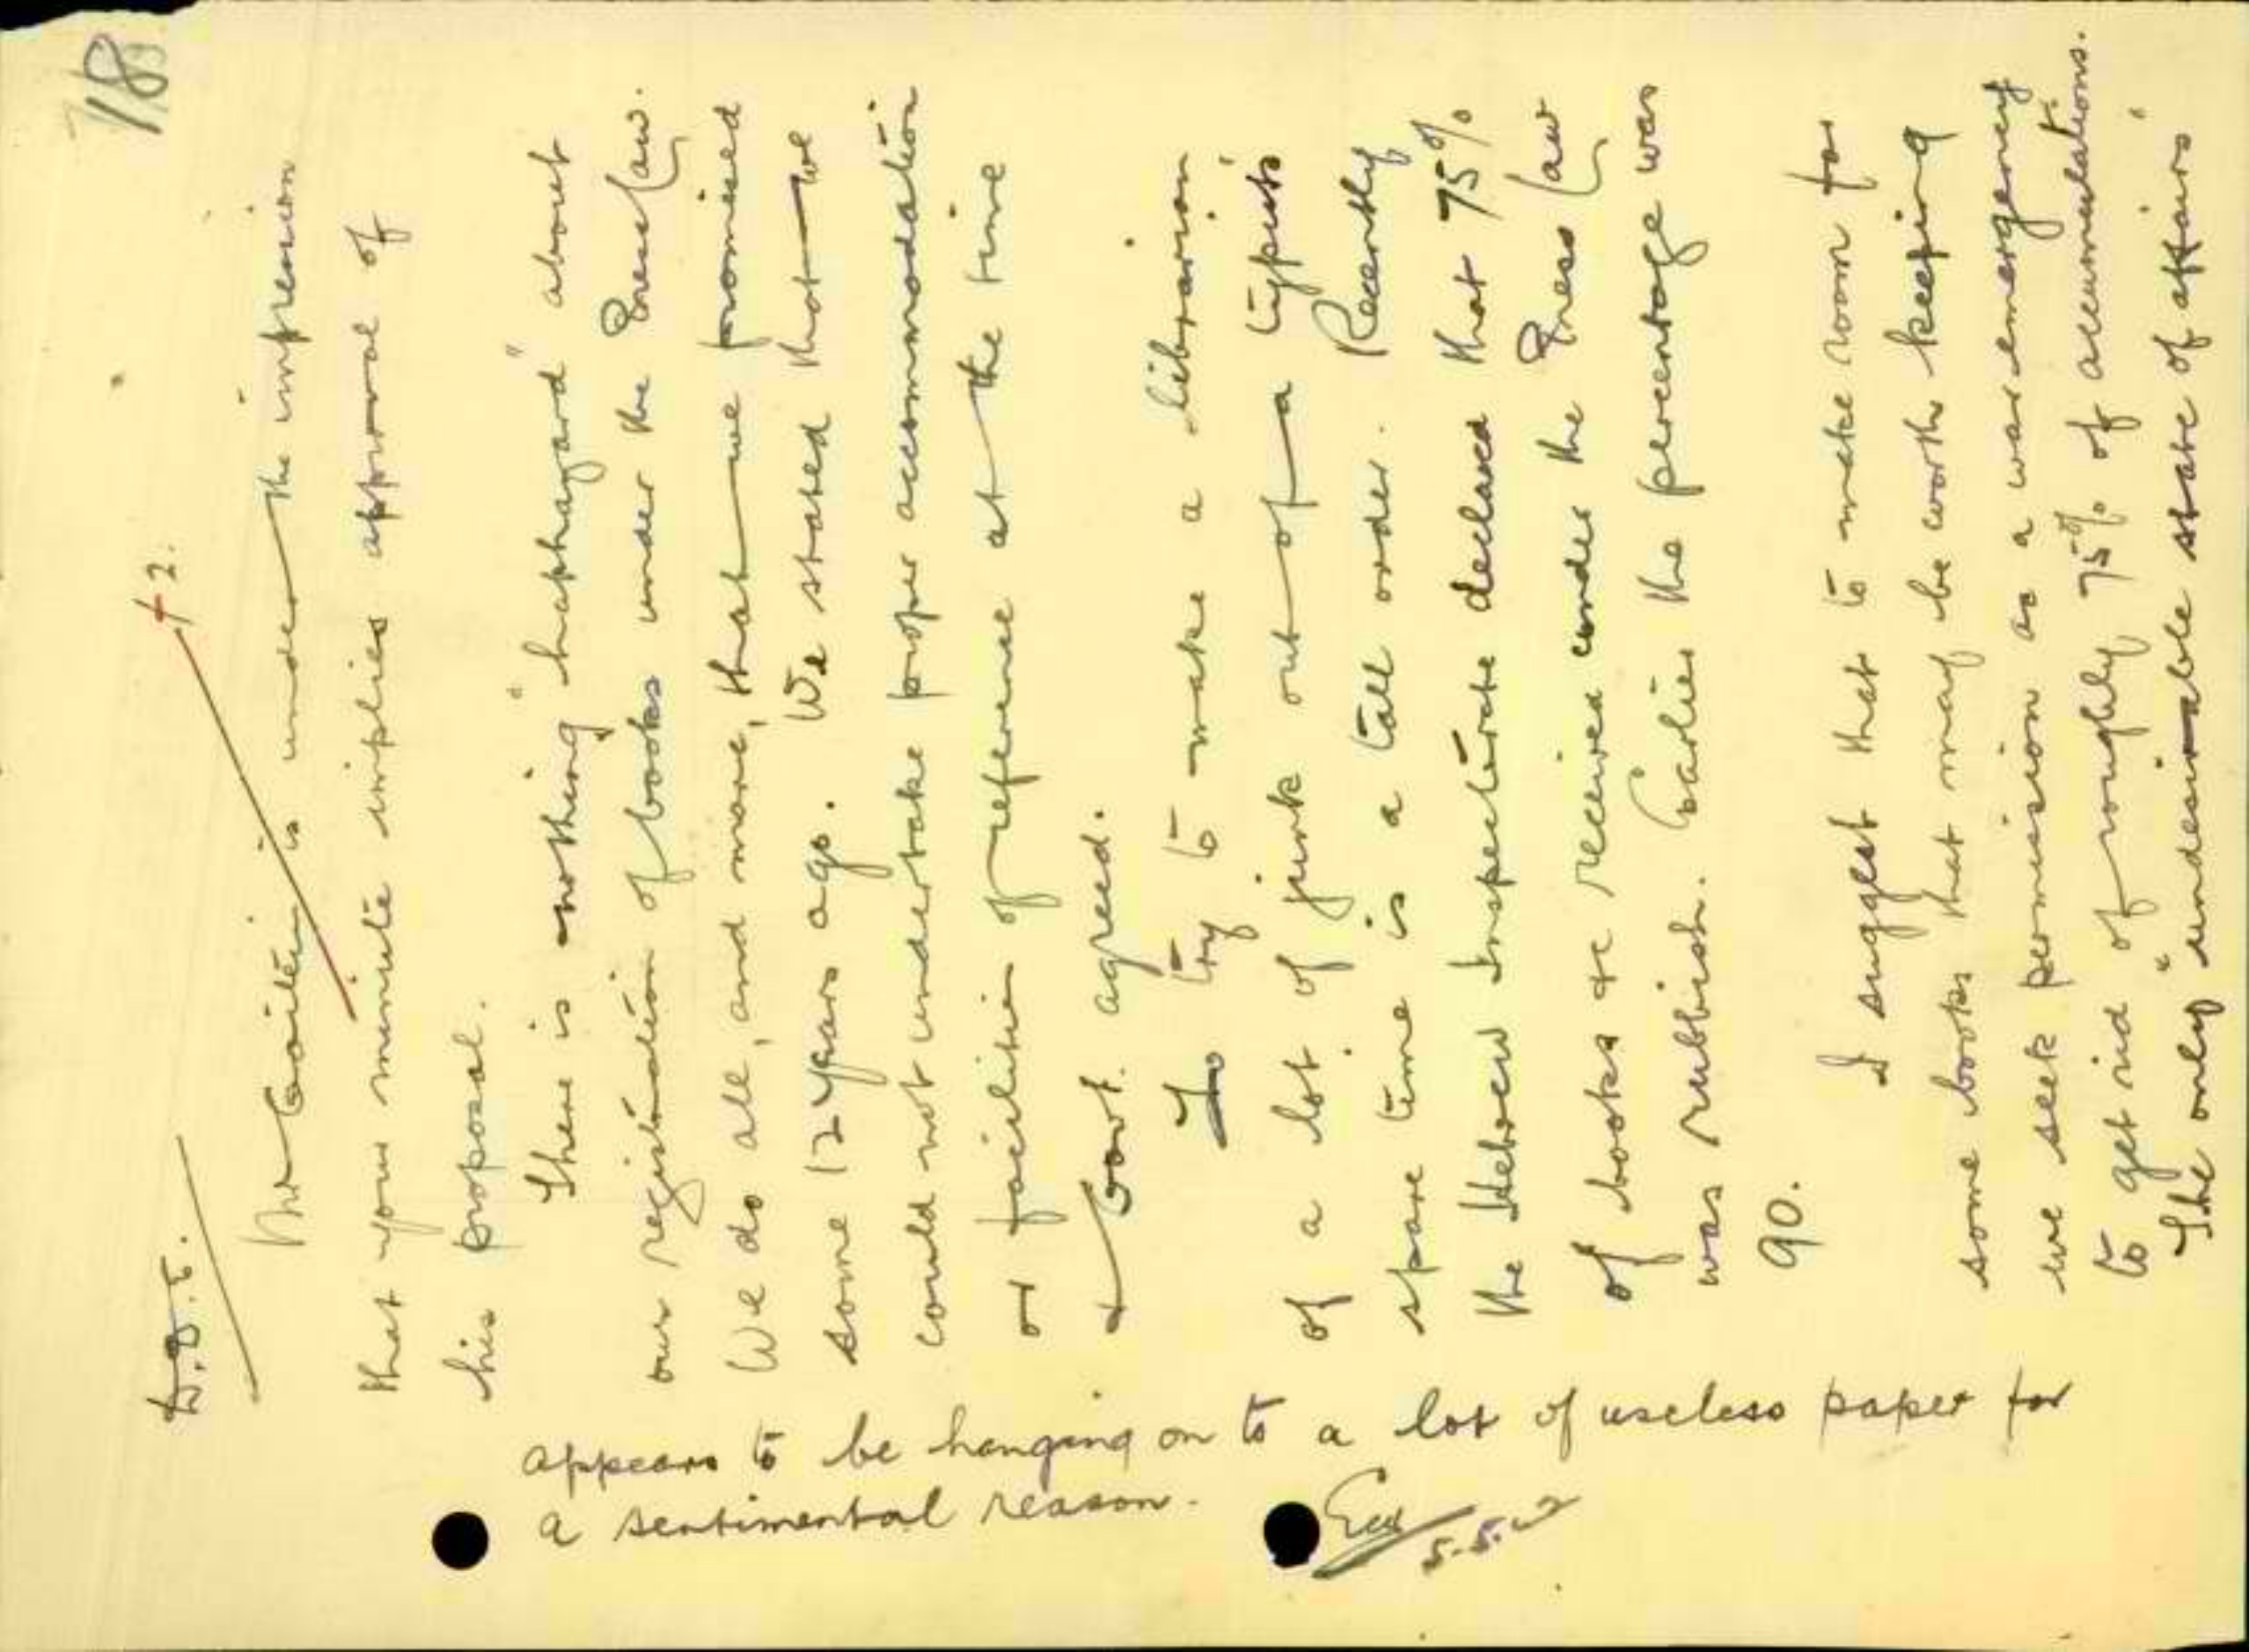 18
D.D.E.
f 2.
Mr Goitein is under the impression
that your minute implies approval of
his proposal.
There is nothing "haphazard" about
our registration of books under the Press Law.
We do all, and more, that we promised
some 12 years ago. We stated that we
could not undertake proper accommodation
or facilities of reference at the time
& Govt. agreed.
To try to make a librarian
of a lot of junk out of a typist's
spare time is a tall order. Recently
the Hebrew Inspectorate declared that 75%
of books &c received under the Press Law
was rubbish. Earlier the percentage was
90.
I suggest that to make room for
some books that may be worth keeping
we seek permission as a war emergency
to get rid of roughly 75% of accumulations.
The only "undesirable state of affairs"
appears to be hanging on to a lot of useless paper for
a sentimental reason.
5.5.42